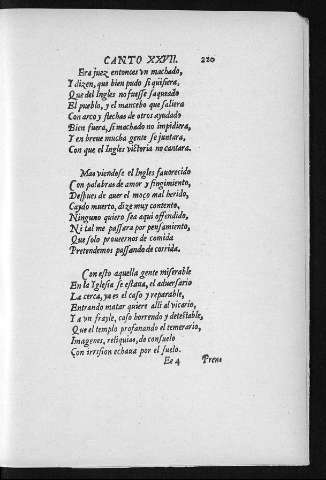 CANTO XXVII. 220
Era juez entonces vn machado,
Y dizen, que bien pudo si quisiera,
Que del Ingles no fuesse saqueado
El pueblo, y el mancebo que saliera
Con arco y flechas de otros ayudado
Bien fuera, si machado no impidiera,
Y en breue mucha gente se juntara,
Con que el Ingles victoria no cantara.
Mas viendose el Ingles fauorecido
Con palabras de amor y fingimiento,
Despues de auer el moço mal herido,
Caydo muerto, dize muy contento,
Ninguno quiero sea aqui offendido,
Ni tal me passara por pensamiento,
Que solo proueernos de comida
Pretendemos passando de corrida.
Con esto aquella gente miserable
En la Yglesia se estaua, el aduersario
La cerca, ya es el caso y reparable,
Entrando matar quiere alli al vicario,
Y a vn frayle, caso horrendo y detestable,
Que el templo profanando el temerario,
Imagenes, reliquias, do consuelo
Con irrision echaua por el suelo.
Ee 4 Pren